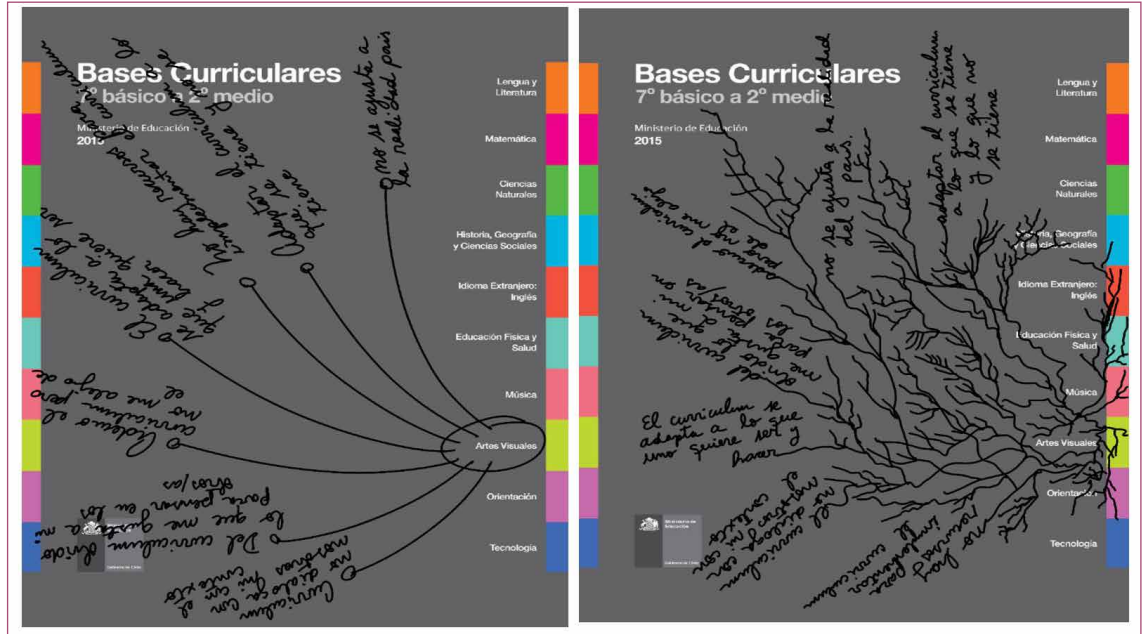 Bases Curriculares
7º básico a 2º medio
Ministerio de Educación
2015
Lengua y
Literatura
Matemática
Ciencias
Naturales
Historia, Geografía
y Ciencias Sociales
Idioma Extranjero:
Inglés
Educación Física y
Salud
Música
Artes Visuales
Orientación
Tecnología
Gobierno de Chile
no se ajusta a
la realidad país
adaptar el curriculum
que se tiene y
se tiene
no hay recursos para
implementar el curriculum
El curriculum
se adapta a lo
que uno quiere ser
y hacer
Adeno el
curriculum pero
no me alejo de
él
Del curriculum olvido
lo que me gusta a mi
para pensar en los
otros/as
Curriculum
no dialoga con
nosotros ni con el
contexto
Bases Curriculares
7º básico a 2º medio
Ministerio de Educación
2015
Lengua y
Literatura
Matemática
Ciencias
Naturales
Historia, Geografía
y Ciencias Sociales
Idioma Extranjero:
Inglés
Educación Física y
Salud
Música
Artes Visuales
Orientación
Tecnología
Ministerio de
Educación
Gobierno de Chile
no se ajusta a la realidad
del país
adaptar el curriculum
a lo que se tiene
y lo que no
se tiene
el curriculum
pero no me alejo
de él
del curriculum
olvido lo que
me gusta a mi
para pensar en
los otros/as
El curriculum se
adapta a lo que
uno quiere ser y
hacer
el curriculum
no dialoga con
nosotros ni con
el contexto
no hay
recursos para
implementar el
curriculum